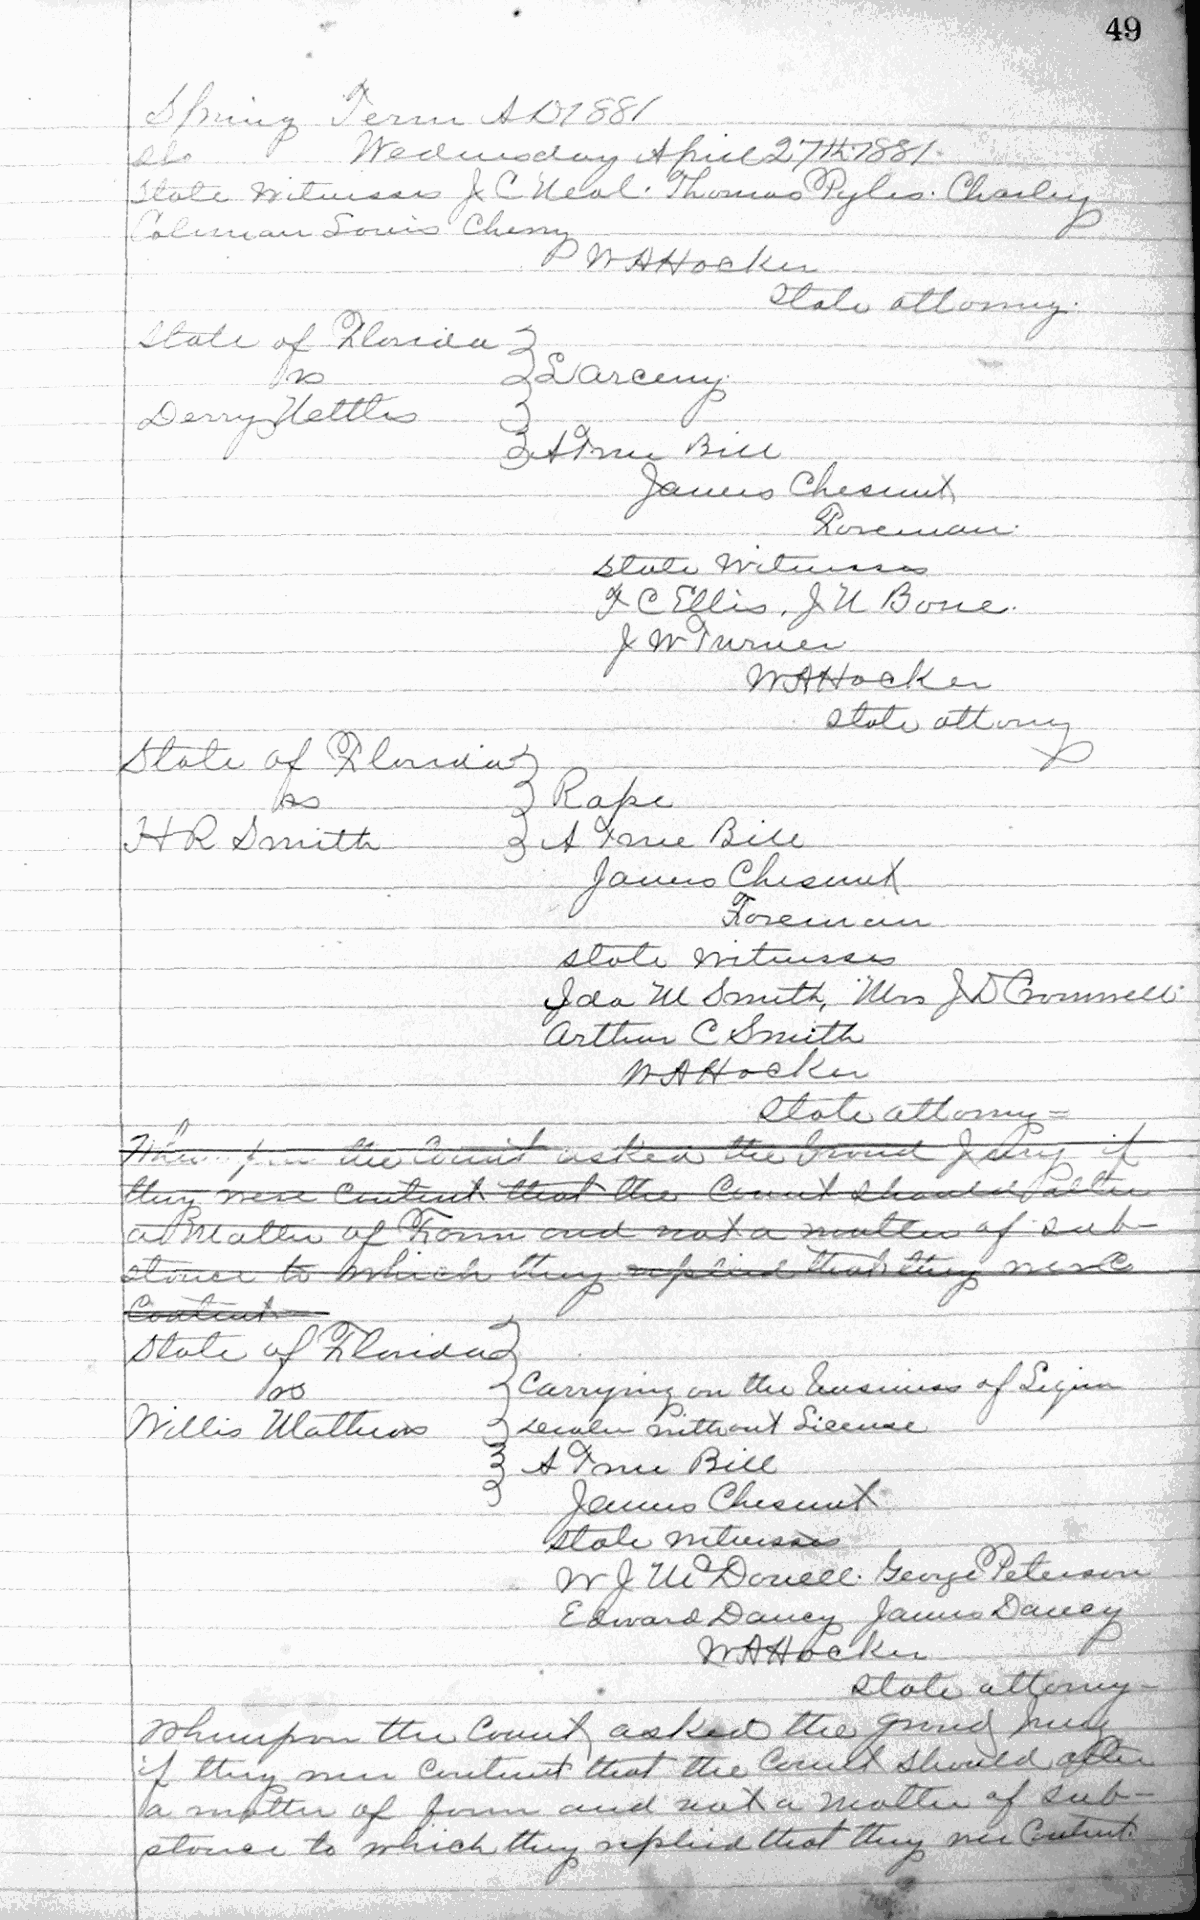 49
Spring Term AD 1881
Wednesday April 27th 1881.
State Witnesses J C Neal. Thomas Pyles. Charley
Coleman Louis Cherry
W A Hocker
State attorney.
State of Florida
vs
Larceny.
Derry Nettles
A True Bill
James Chesnut
Foreman.
State Witnesses
F C Ellis, J N Bone.
J W Turner
W A Hocker
State attorny
State of Florida
vs
Rape
H R Smith
A True Bill
James Chesnut
Foreman
State Witnesses
Ida M Smith, Mrs J D Cromwell.
Arthur C Smith
W A Hocker
State attorny =
the Court asked the Grand Jury if
they were Content that the Court should alter
a Matter of Form and not a matter of sub-
stance to which they replied that they were
Content
State of Florida
vs
Carrying on the business of Liquor
Willis Mathews
dealer without License
A True Bill
James Chesnut
State Witnesses
W J McDonell. George Peterson
Edward Dancy James Dancy
W A Hocker
State attorney -
Whereupon the Court asked the grand Jury
if they were Content that the Court should alter
a matter of form and not a matter of sub-
stance to which they replied that they were Content.